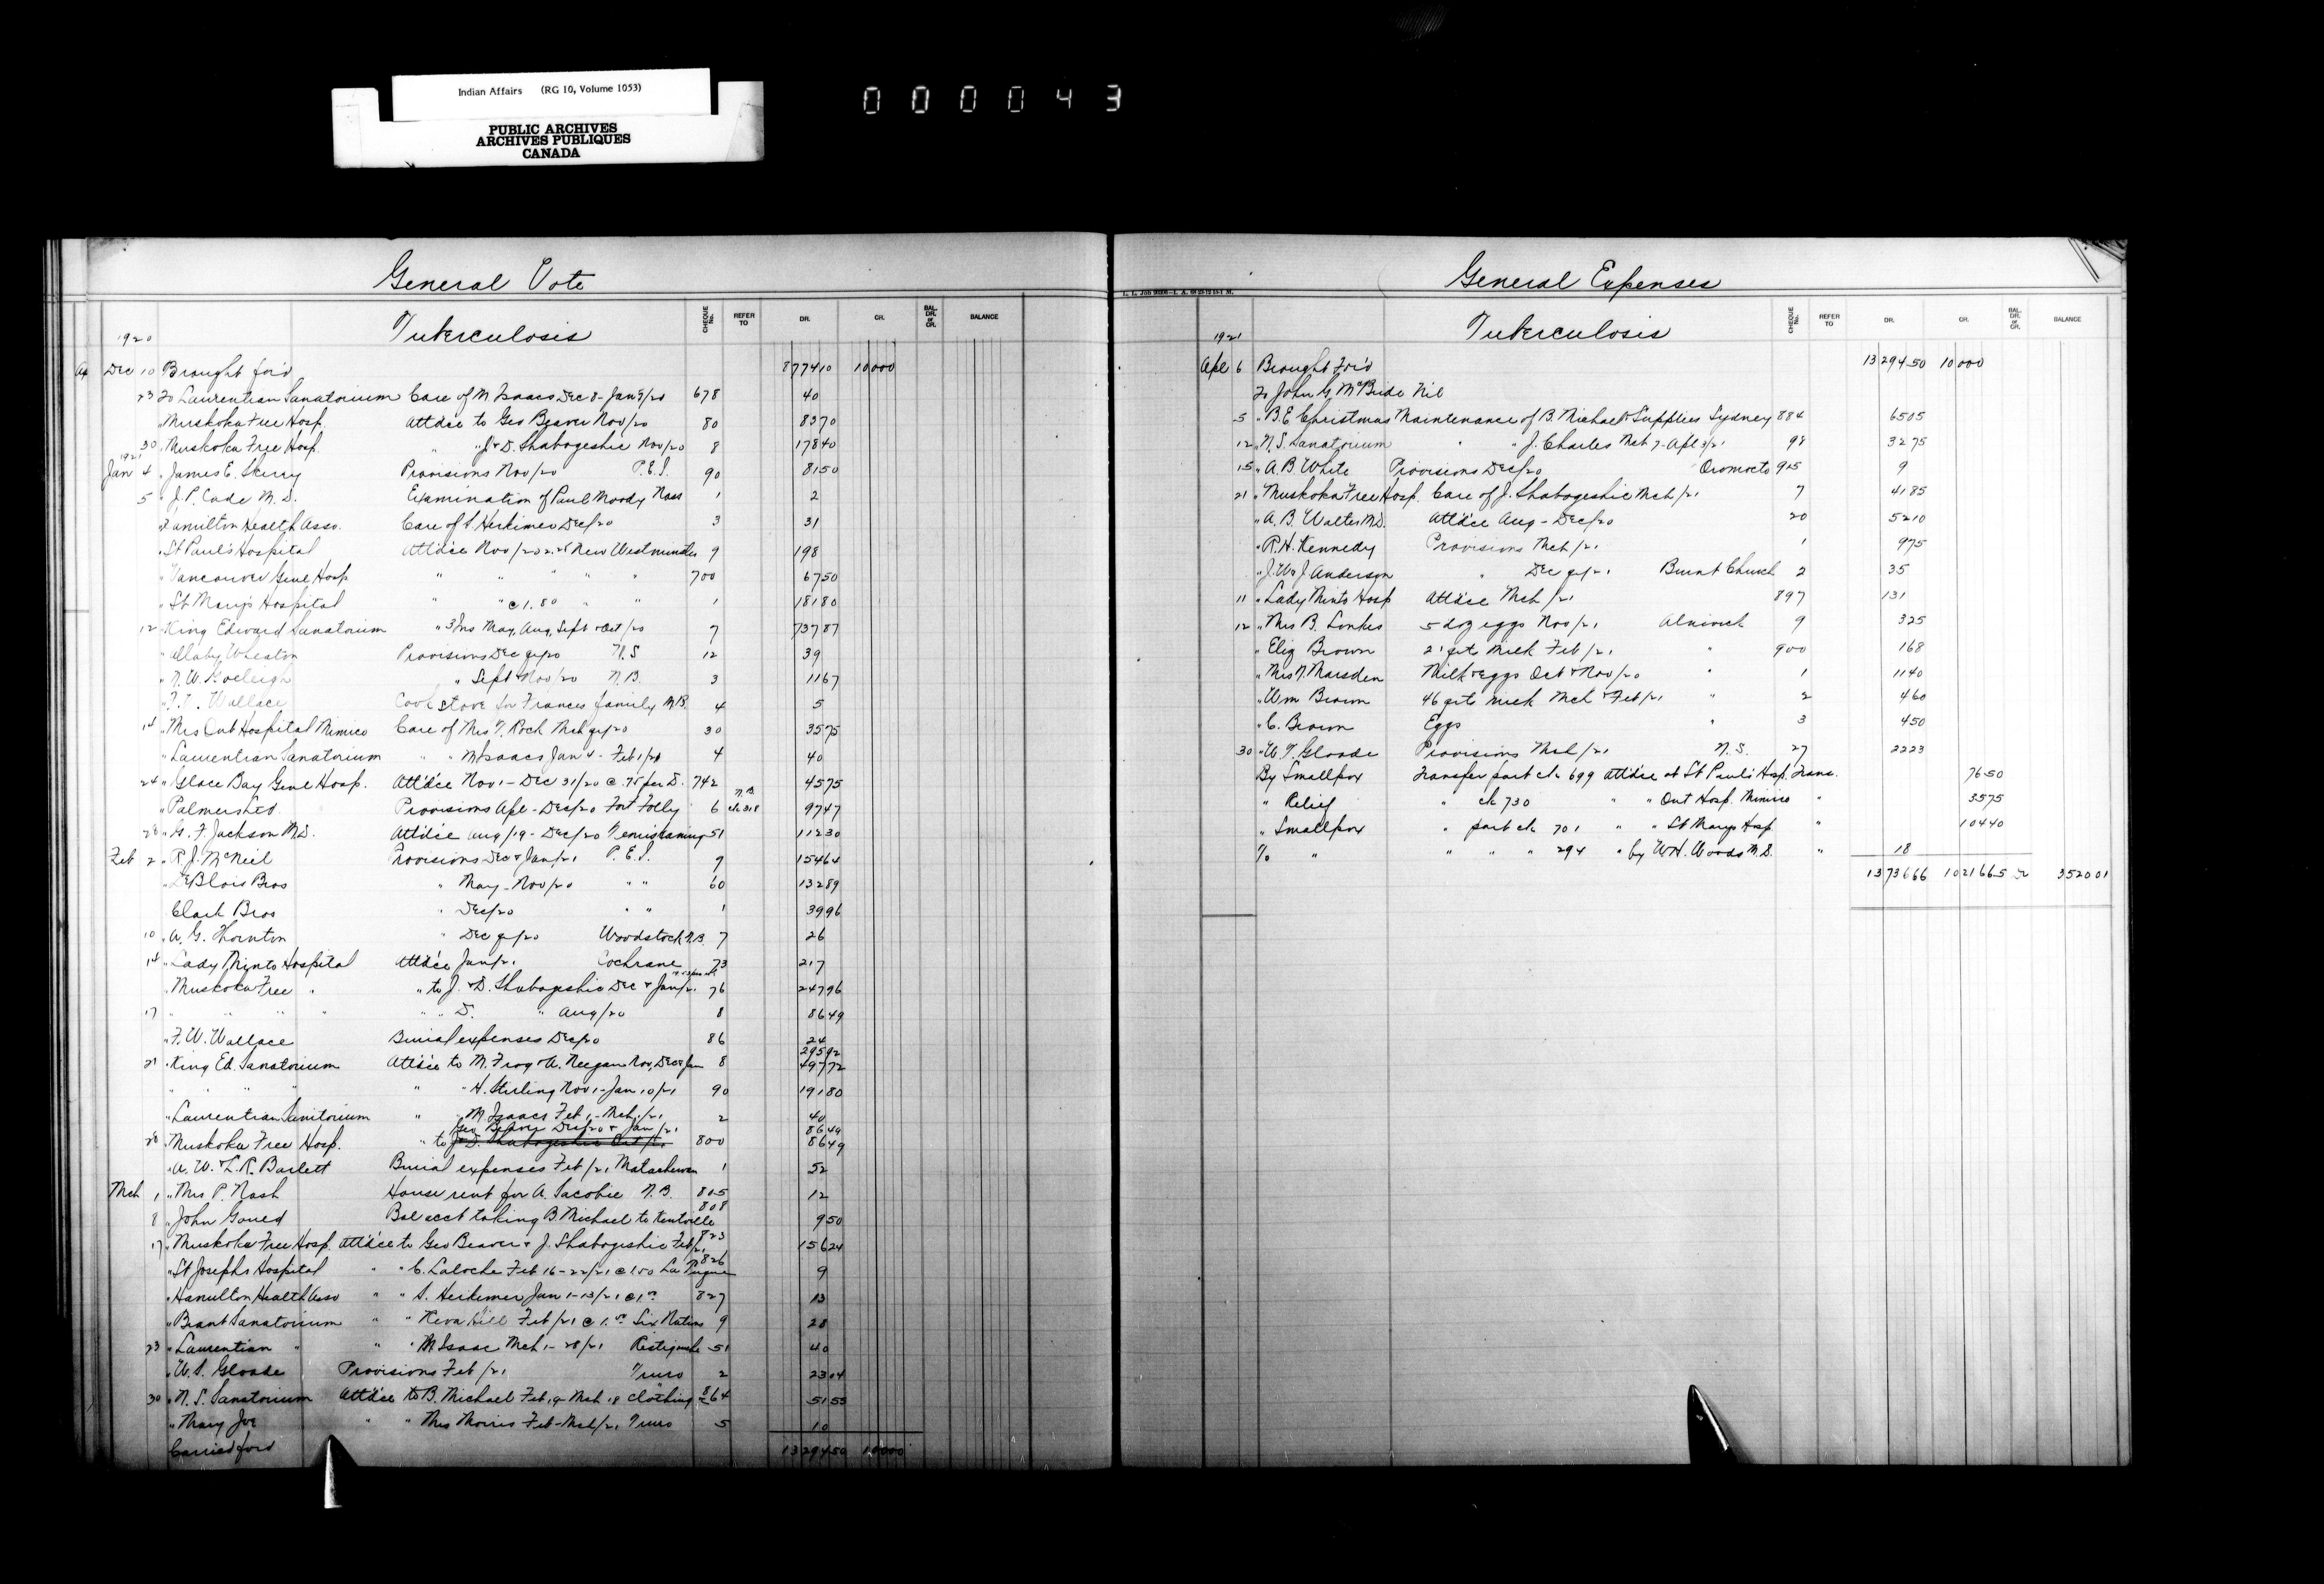 Indian Affairs (RG 10, Volume 1053)
PUBLIC ARCHIVES
ARCHIVES PUBLIQUES
CANADA
000043
General Vote
Tuberculosis
CHEQUE No. REFER TO DR. CR. BAL. DR. or CR. BALANCE
1920
Dec 10 Brought for'd 877410 10000
23 To Laurentian Sanatorium Care of M Isaacs Dec 8 - Jan 4/20 678 40
" Muskoka Free Hosp. Att'd'ce to Geo Beaver Nov/20 80 8370
30 " Muskoka Free Hosp. " " J & D. Shabogeshic Nov/20 8 17840
1921
Jan 4 " James E. Skerry Provisions Nov/20 P.E.I. 90 8150
5 " J. P. Cade M.D. Examination of Paul Moody Nass 1 2
Hamilton Health Asso. Care of S. Herkimer Dec/20 3 31
" St Paul's Hospital Att'd'ce Nov/20 2.25 New Westminster 9 198
" Vancouver Genl Hosp " " " " " 700 6750
" St Mary's Hospital " " @ 1.80 " " 1 18180
12 " King Edward Sanatorium " 3 Ins May, Aug, Sept & Oct/20 7 73787
" Allaby Wheaton Provisions Dec qr/20 N.S 12 39
" N. W. " Sept & Nov/20 N.B. 3 1167
" Wallace Cook stove for Frances family N.B. 4 5
14 " Mrs Ont Hospital Mimico Care of Mrs T. Roch Mch qr/20 30 3575
" Laurentian Sanatorium " " M Isaacs Jan 4 - Feb 1/21 4 40
24 " Glace Bay Genl Hosp. Att'd'ce Nov 1 - Dec 31/20 @ .75 per D. 742 4575
" Palmers Ltd. Provisions Apl - Dec/20 Fort Folly N.B. 6 ck 318 9747
28 " G. F. Jackson M.D. Att'd'ce Aug/19 - Dec/20 Temiskaming 51 11230
Feb 2 " R. J. McNeil Provisions Dec & Jan/21 P.E.I. 9 15464
" DeBlois Bros " May - Nov/20 " " 60 13289
Clark Bros " Dec/20 " " 1 3996
10 " A. G. Thornton " Dec qr/20 Woodstock N.B. 7 26
14 " Lady Minto Hospital Att'd'ce Jan/21 Cochrane 73 217
" Muskoka Free " " to J. & D. Shabogeshic Dec & Jan/21 76 24796
17 " " " " " " D. " Aug/20 8 8649
" F. W. Wallace Burial expenses Dec/20 86 24
29592
21 " King Ed. Sanatorium Att'd'ce to M. Frog & A. Neegan Nov, Dec & Jan 8 49772
" " " " " H. Sterling Nov 1 - Jan 10/21 90 19180
" Laurentian Sanitorium " " M Isaacs Feb 1 - Mch 1/21 2 40
Geo Beaver Dec/20 & Jan/21 8649
28 " Muskoka Free Hosp. " to J & D. Shabogeshic Oct/20 800 8649
" A. W. & L. R. Barlett Burial expenses Feb/21 Matachewan 1 52
Mch 1 " Mrs P. Nash House rent for A. Sacobie N.B. 805 12
8 " John Goued Bal acct taking B Michael to Kentville 808 950
17 " Muskoka Free Hosp. Att'd'ce to Geo Beaver & J. Shabogeshic Feb/21 823 15624
" St Josephs Hospital " " C. Laloche Feb 16 - 22/21 @ 1.50 826 9
" Hamilton Health Asso " " S. Herkimer Jan 1 - 13/21 @ 1.00 827 13
" Brant Sanatorium " " Keva Hill Feb/21 @ 1.00 Six Nations 9 28
23 " Laurentian " " " M Isaac Mch 1 - 28/21 Restigouche 51 40
" W. S. Gloade Provisions Feb/21 Truro 2 2304
30 " N. S. Sanatorium Att'd'ce to B. Michael Feb 19 - Mch 18 clothing 864 5155
" Mary Joe " " Mrs Morris Feb - Mch/21 Truro 5 10
Carried for'd 1329450 10000
General Expenses
Tuberculosis
CHEQUE No. REFER TO DR. CR. BAL. DR. or CR. BALANCE
1921
Apl 6 Brought For'd 1329450 10000
To John G. McBride Nil
5 " B.E. Christmas Maintenance of B. Michael & Supplies Sydney 884 6505
12 " N.S. Sanatorium " " J. Charles Mch 7 - Apl 3/21 98 3275
15 " A. B. White Provisions Dec/20 Oromocto 905 9
21 " Muskoka Free Hosp. Care of J. Shabogeshic Mch/21 7 4185
" A. B. Walter M.D. Att'd'ce Aug - Dec/20 20 5210
" R. H. Kennedy Provisions Mch/21 1 975
" J. W. & J. Anderson " Dec qr/21 Burnt Church 2 35
11 " Lady Minto Hosp Att'd'ce Mch/21 897 131
12 " Mrs B. Lonkes 5 doz eggs Nov/21 Alnwick 9 325
" Eliz Brown 21 qrts Milk Feb/21 " 900 168
" Mrs N. Marsden Milk & Eggs Oct & Nov/20 " 1 1140
" Wm Brown 46 qrts milk Mch & Feb/21 " 2 460
" C. Brown Eggs " 3 450
30 " W. T. Gloade Provisions Mch/21 N.S. 27 2223
By Smallpox Transfer part ck 699 att'd'ce at St Paul's Hosp. Trans. 7650
" Relief " ck 730 " " Ont Hosp. Mimico " 3575
" Smallpox " part ck 701 " " St Marys Hosp " 10440
To " " " " 294 " by W.H. Woods M.D. " 18
1373666 1021665 Dr 352001